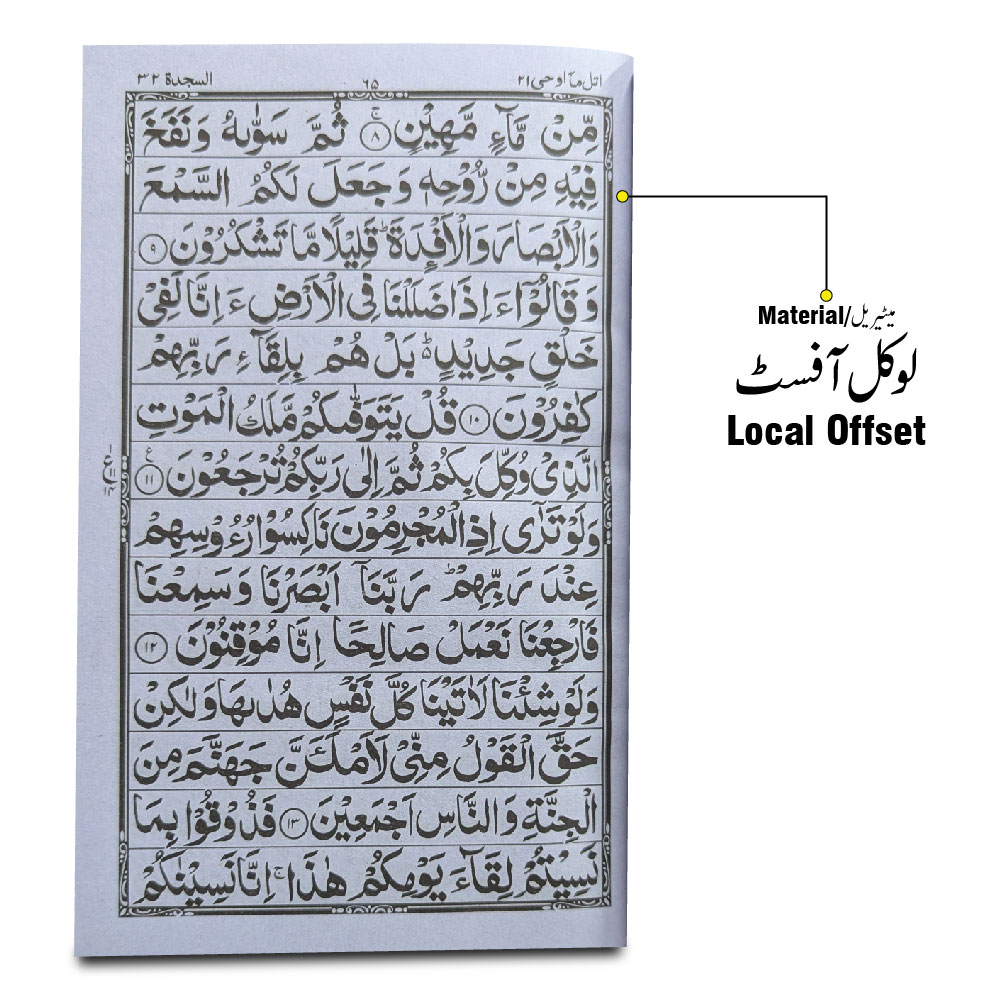 اتل مآ اوحی ۲۱ ۶۵ السجدة ۳۲
مِّنْ مَّآءٍ مَّهِیْنٍ ۚ ﴿۸﴾ ثُمَّ سَوّٰىهُ وَنَفَخَ
فِیْهِ مِنْ رُّوْحِهٖ وَجَعَلَ لَكُمُ السَّمْعَ
وَالْاَبْصَارَ وَالْاَفْـِٕدَةَ ؕ قَلِیْلًا مَّا تَشْكُرُوْنَ ﴿۹﴾
وَقَالُوْۤا ءَاِذَا ضَلَلْنَا فِی الْاَرْضِ ءَاِنَّا لَفِیْ
خَلْقٍ جَدِیْدٍ ؕ۬ بَلْ هُمْ بِلِقَآءِ رَبِّهِمْ
كٰفِرُوْنَ ﴿۱۰﴾ قُلْ یَتَوَفّٰىكُمْ مَّلَكُ الْمَوْتِ
الَّذِیْ وُكِّلَ بِكُمْ ثُمَّ اِلٰی رَبِّكُمْ تُرْجَعُوْنَ ﴿۱۱﴾ ع
وَلَوْ تَرٰۤی اِذِ الْمُجْرِمُوْنَ نَاكِسُوْا رُءُوْسِهِمْ
عِنْدَ رَبِّهِمْ ؕ رَبَّنَاۤ اَبْصَرْنَا وَسَمِعْنَا
فَارْجِعْنَا نَعْمَلْ صَالِحًا اِنَّا مُوْقِنُوْنَ ﴿۱۲﴾
وَلَوْ شِئْنَا لَاٰتَیْنَا كُلَّ نَفْسٍ هُدٰىهَا وَلٰكِنْ
حَقَّ الْقَوْلُ مِنِّیْ لَاَمْلَـَٔنَّ جَهَنَّمَ مِنَ
الْجِنَّةِ وَالنَّاسِ اَجْمَعِیْنَ ﴿۱۳﴾ فَذُوْقُوْا بِمَا
نَسِیْتُمْ لِقَآءَ یَوْمِكُمْ هٰذَا ۚ اِنَّا نَسِیْنٰكُمْ
Material/میٹیریل
لوکل آفسٹ
Local Offset